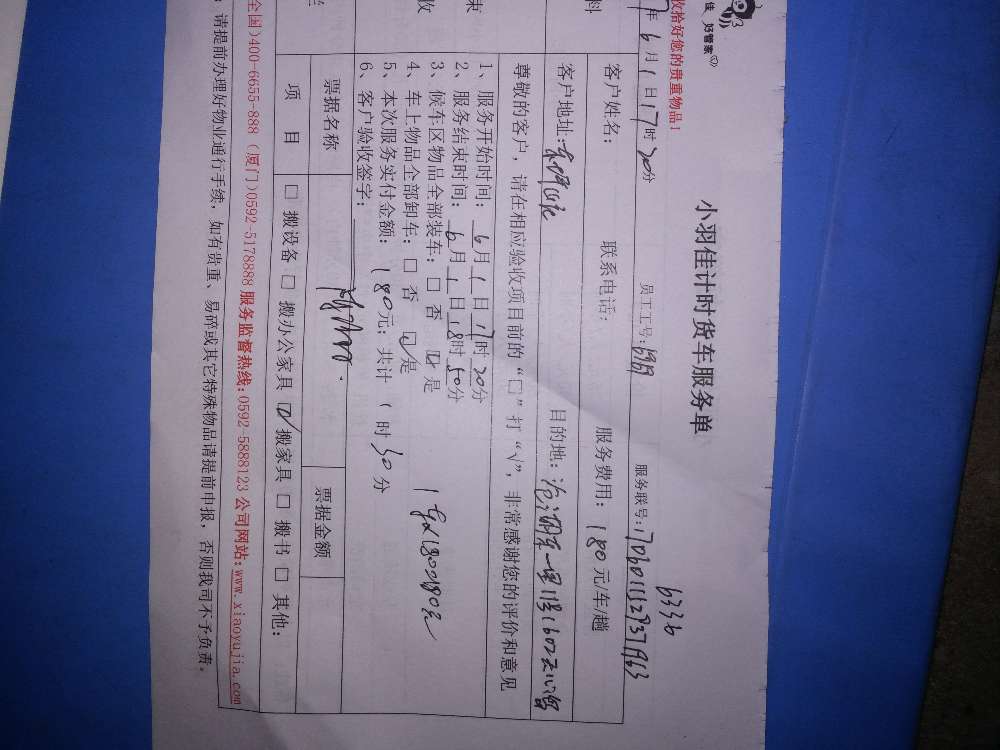 佳 好管家
收拾好您的贵重物品!
小羽佳计时货车服务单
6336
年6月1日17时20分 员工工号: 服务联号:
料 客户姓名: 联系电话: 服务费用:180元/车/趟
客户地址: 目的地:
尊敬的客户,请在相应验收项目前的“□”打“√”,非常感谢您的评价和意见
束
收
1、服务开始时间:6月1日17时20分
2、服务结束时间:6月1日18时50分
3、候车区物品全部装车:□ 否 ☑ 是
4、车上物品全部卸车:□ 否 ☑ 是
5、本次服务实付金额:180元;共计1时30分
6、客户验收签字:
票据名称 票据金额
项 目 □ 搬设备 □ 搬办公家具 ☑ 搬家具 □ 搬书 □ 其他:
全国)400-6655-888 (厦门)0592-5178888 服务监督热线:0592-5888123 公司网站:www.xiaoyujia.com
:请提前办理好物业通行手续,如有贵重、易碎或其它特殊物品请提前申报,否则我司不予负责。